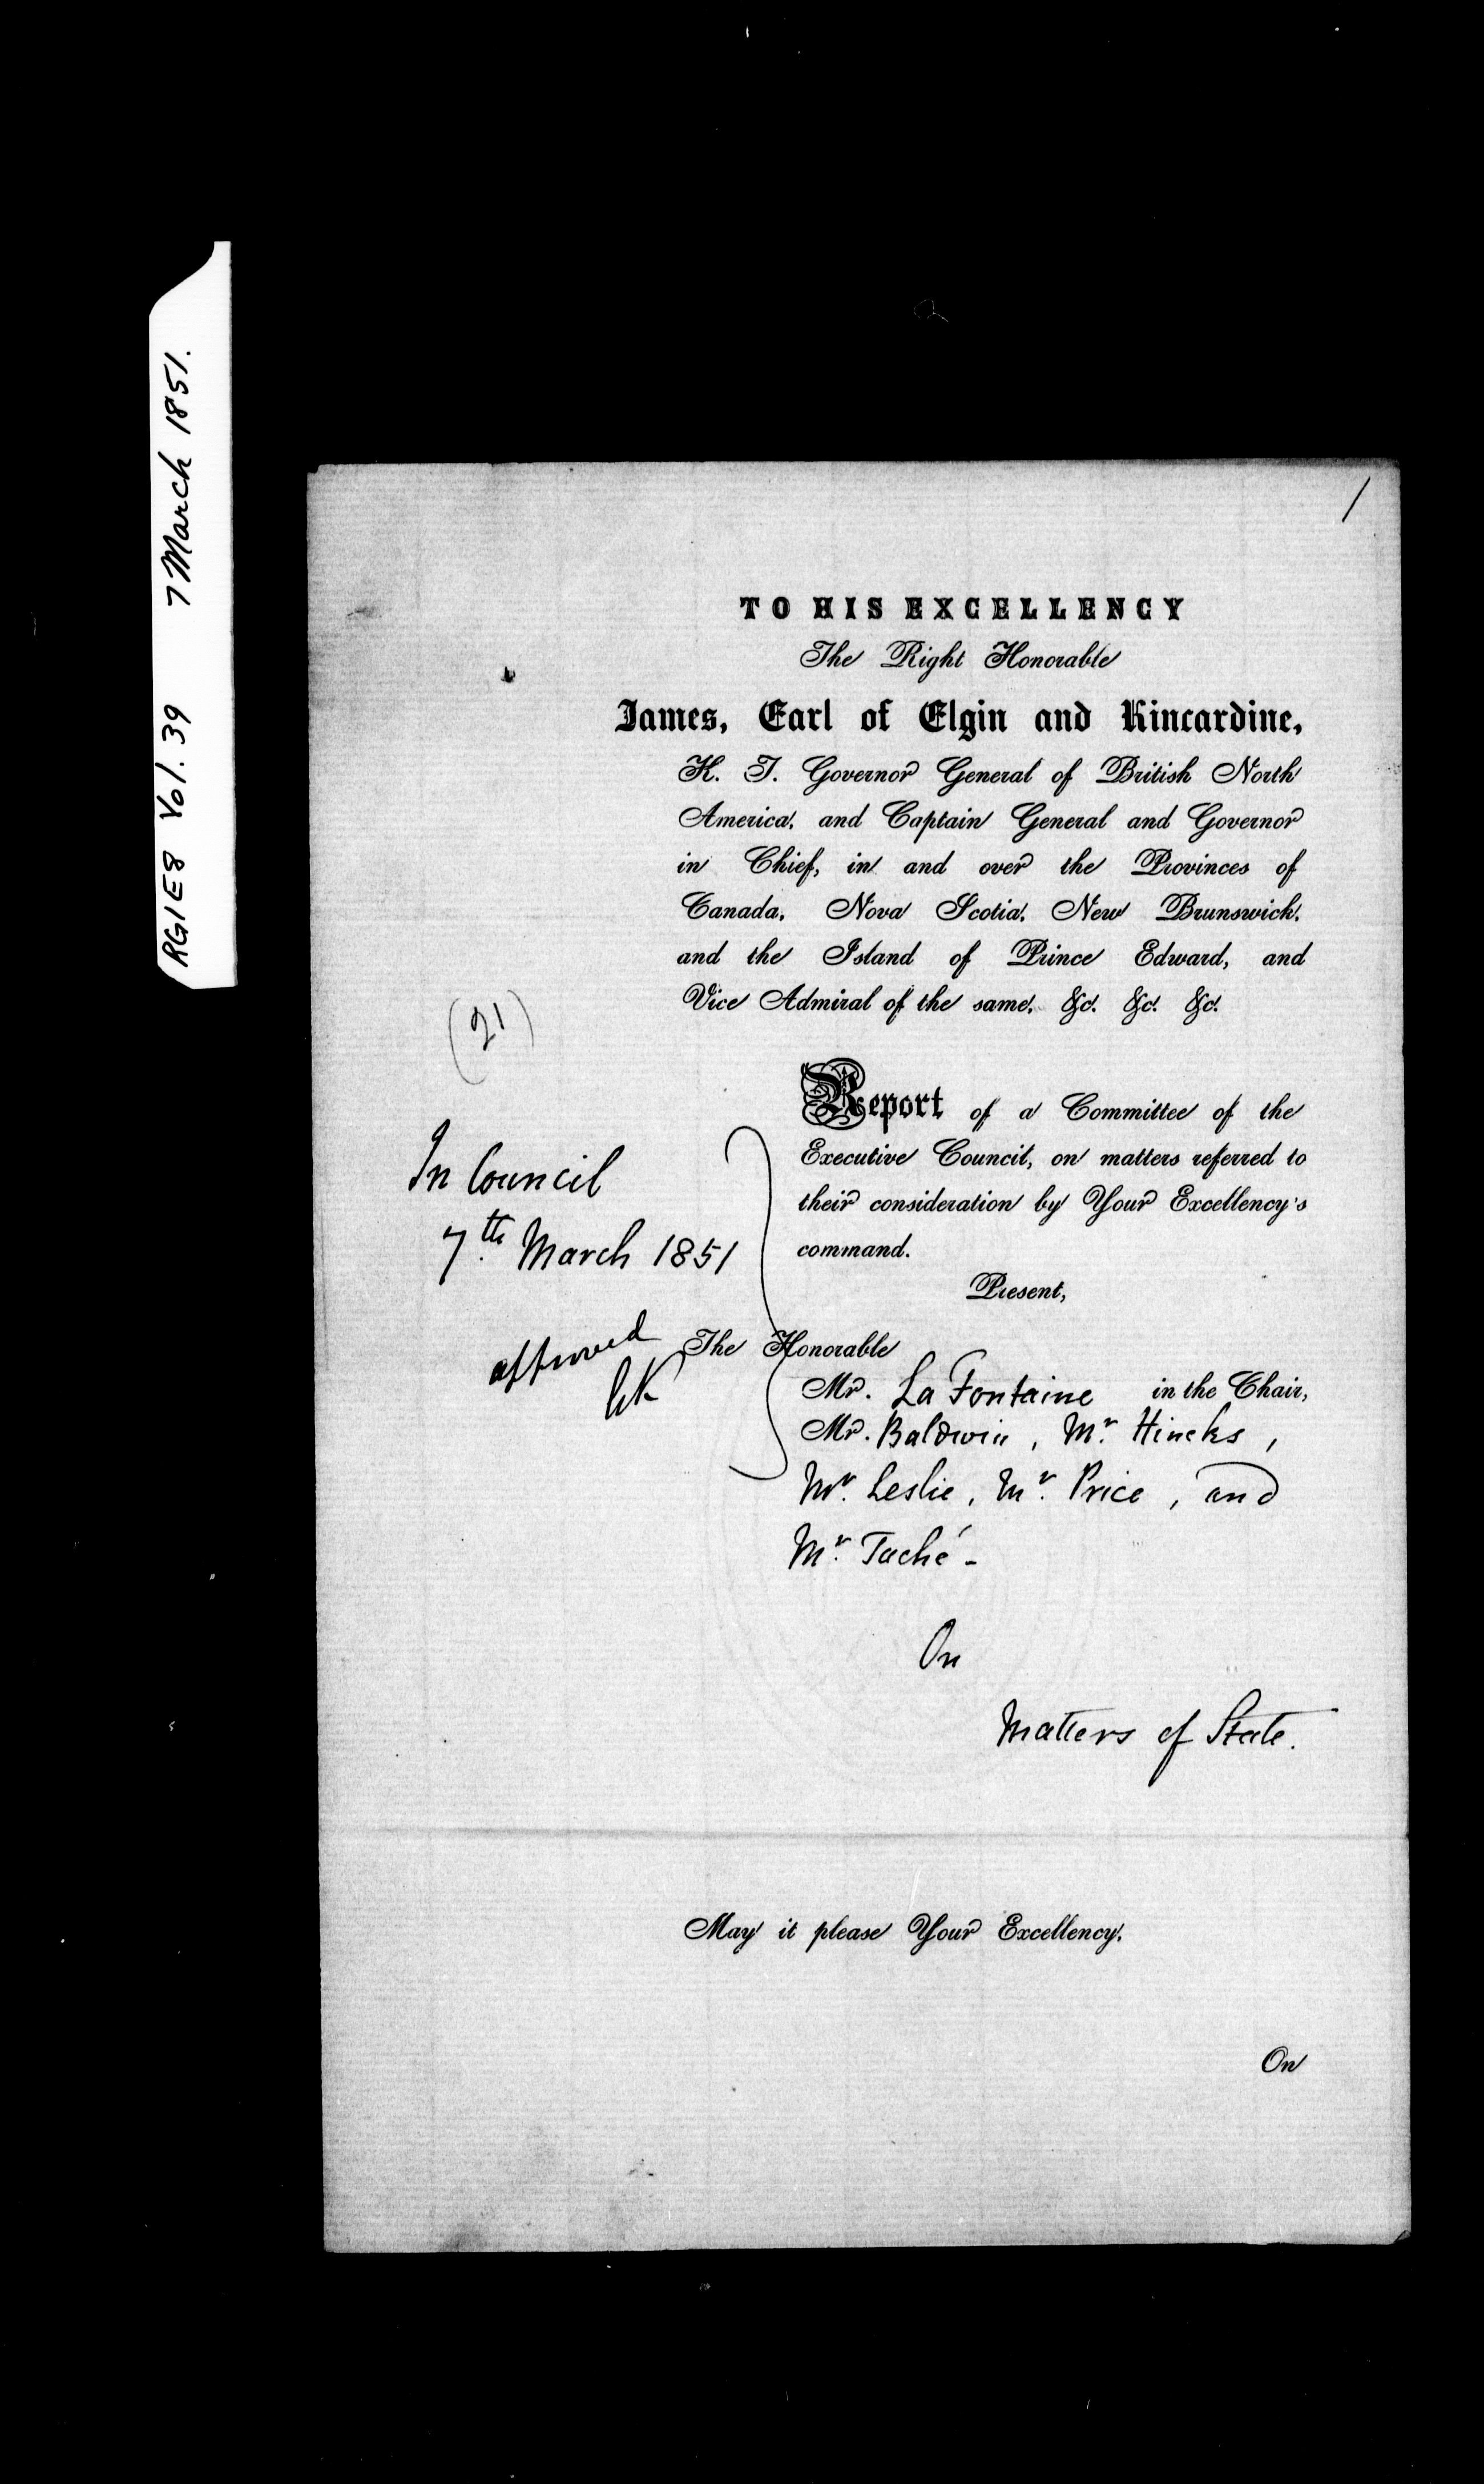 RG1E8 Vol. 39 7 March 1851.
1
TO HIS EXCELLENCY
The Right Honorable
James, Earl of Elgin and Kincardine,
K. T. Governor General of British North
America, and Captain General and Governor
in Chief, in and over the Provinces of
Canada, Nova Scotia, New Brunswick,
and the Island of Prince Edward, and
Vice Admiral of the same, &c. &c. &c.
(21)
Report of a Committee of the
Executive Council, on matters referred to
their consideration by Your Excellency's
command.
In Council
7th March 1851
approved
Present,
The Honorable
Mr. La Fontaine in the Chair,
Mr. Baldwin, Mr. Hincks,
Mr. Leslie, Mr. Price, and
Mr. Taché -
On
Matters of State.
May it please Your Excellency,
On